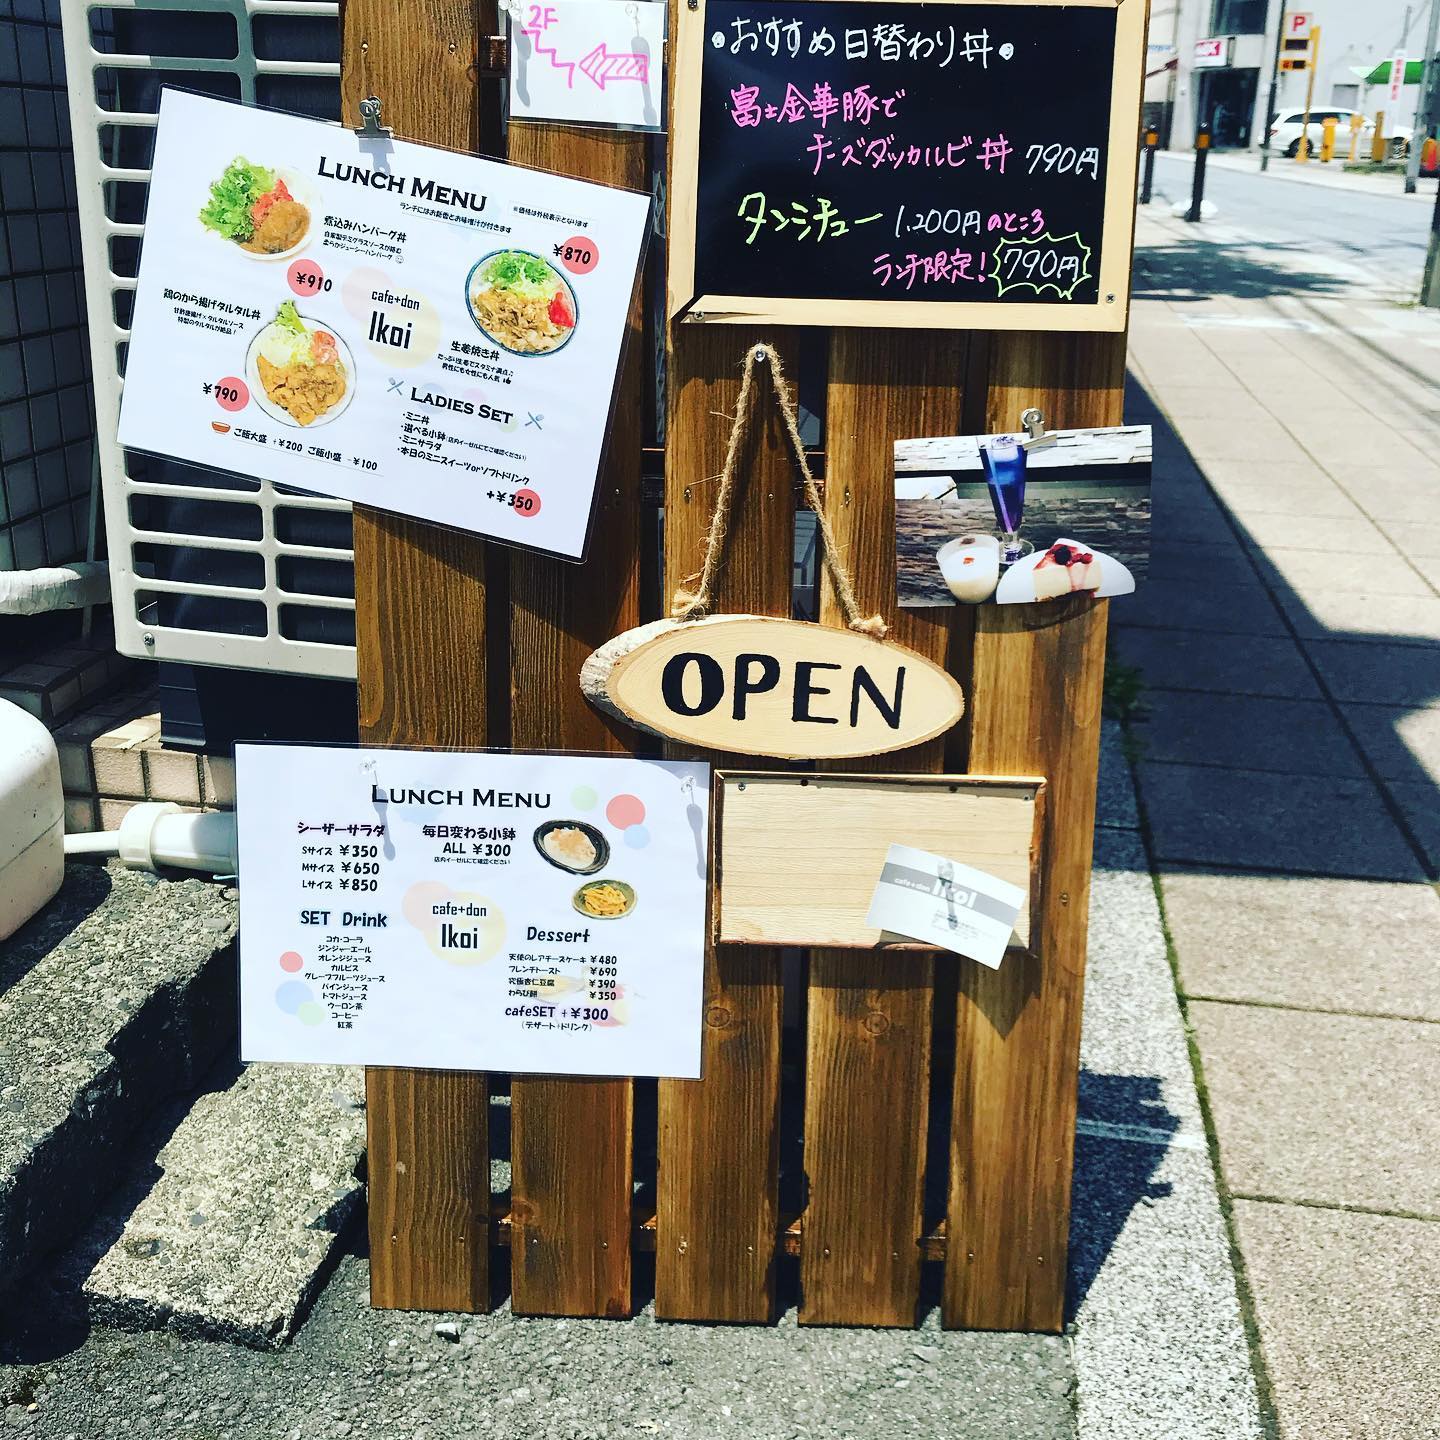 2F
おすすめ日替わり丼
富士金華豚で
チーズダッカルビ丼 790円
タンシチュー 1,200円のところ
ランチ限定! 790円
P
LUNCH MENU
ランチにはお新香とお味噌汁が付きます
※価格は外税表示となります
煮込みハンバーグ丼
自家製デミグラスソースが絡む
柔らかジューシーハンバーグ
¥910
¥870
生姜焼き丼
たっぷり生姜でスタミナ満点♪
男性にも女性にも人気
鶏のから揚げタルタル丼
甘酢唐揚げ×タルタルソース
特製のタルタルが絶品!
¥790
cafe+don
Ikoi
LADIES SET
・ミニ丼
・選べる小鉢(店内イーゼルにてご確認ください)
・ミニサラダ
・本日のミニスイーツorソフトドリンク
+¥350
ご飯大盛 +¥200 ご飯小盛 -¥100
OPEN
LUNCH MENU
シーザーサラダ
Sサイズ ¥350
Mサイズ ¥650
Lサイズ ¥850
毎日変わる小鉢
ALL ¥300
店内イーゼルにて確認ください
SET Drink
コカ・コーラ
ジンジャーエール
オレンジジュース
カルピス
グレープフルーツジュース
パインジュース
トマトジュース
ウーロン茶
コーヒー
紅茶
cafe+don
Ikoi
Dessert
天使のレアチーズケーキ ¥480
フレンチトースト ¥690
究極杏仁豆腐 ¥390
わらび餅 ¥350
cafeSET +¥300
(デザート+ドリンク)
cafe+don Ikoi